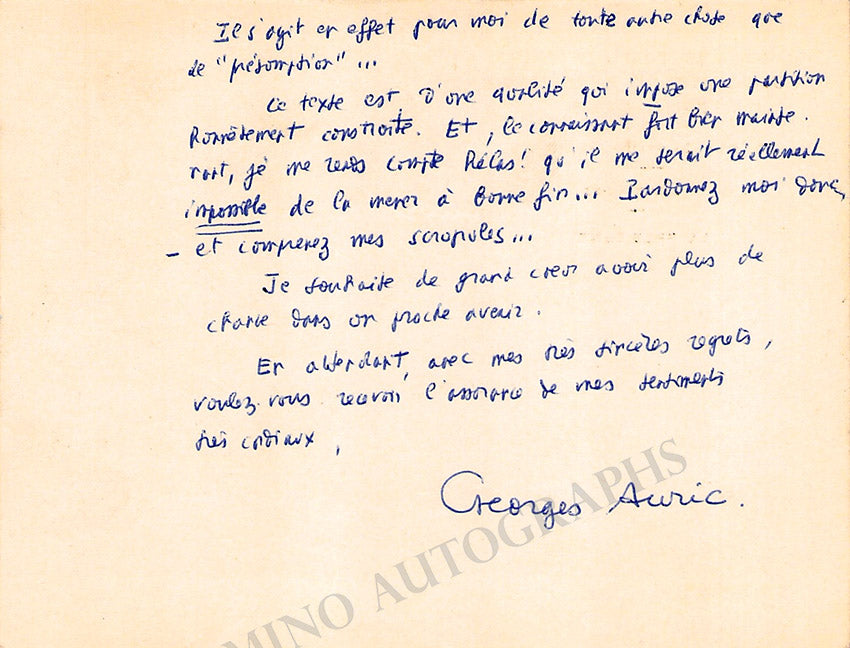 Il s'agit en effet pour moi de toute autre chose que
de "présomption"...
Ce texte est d'une qualité qui impose une partition
honnêtement construite. Et, le connaissant fort bien mainte-
nant, je me rends compte hélas! qu'il me serait réellement
impossible de la mener à bonne fin... Pardonnez moi donc,
– et comprenez mes scrupules...
Je souhaite de grand cœur avoir plus de
chance dans un proche avenir.
En attendant, avec mes très sincères regrets,
voulez-vous recevoir l'assurance de mes sentiments
très cordiaux,
Georges Auric.
MINO AUTOGRAPHS